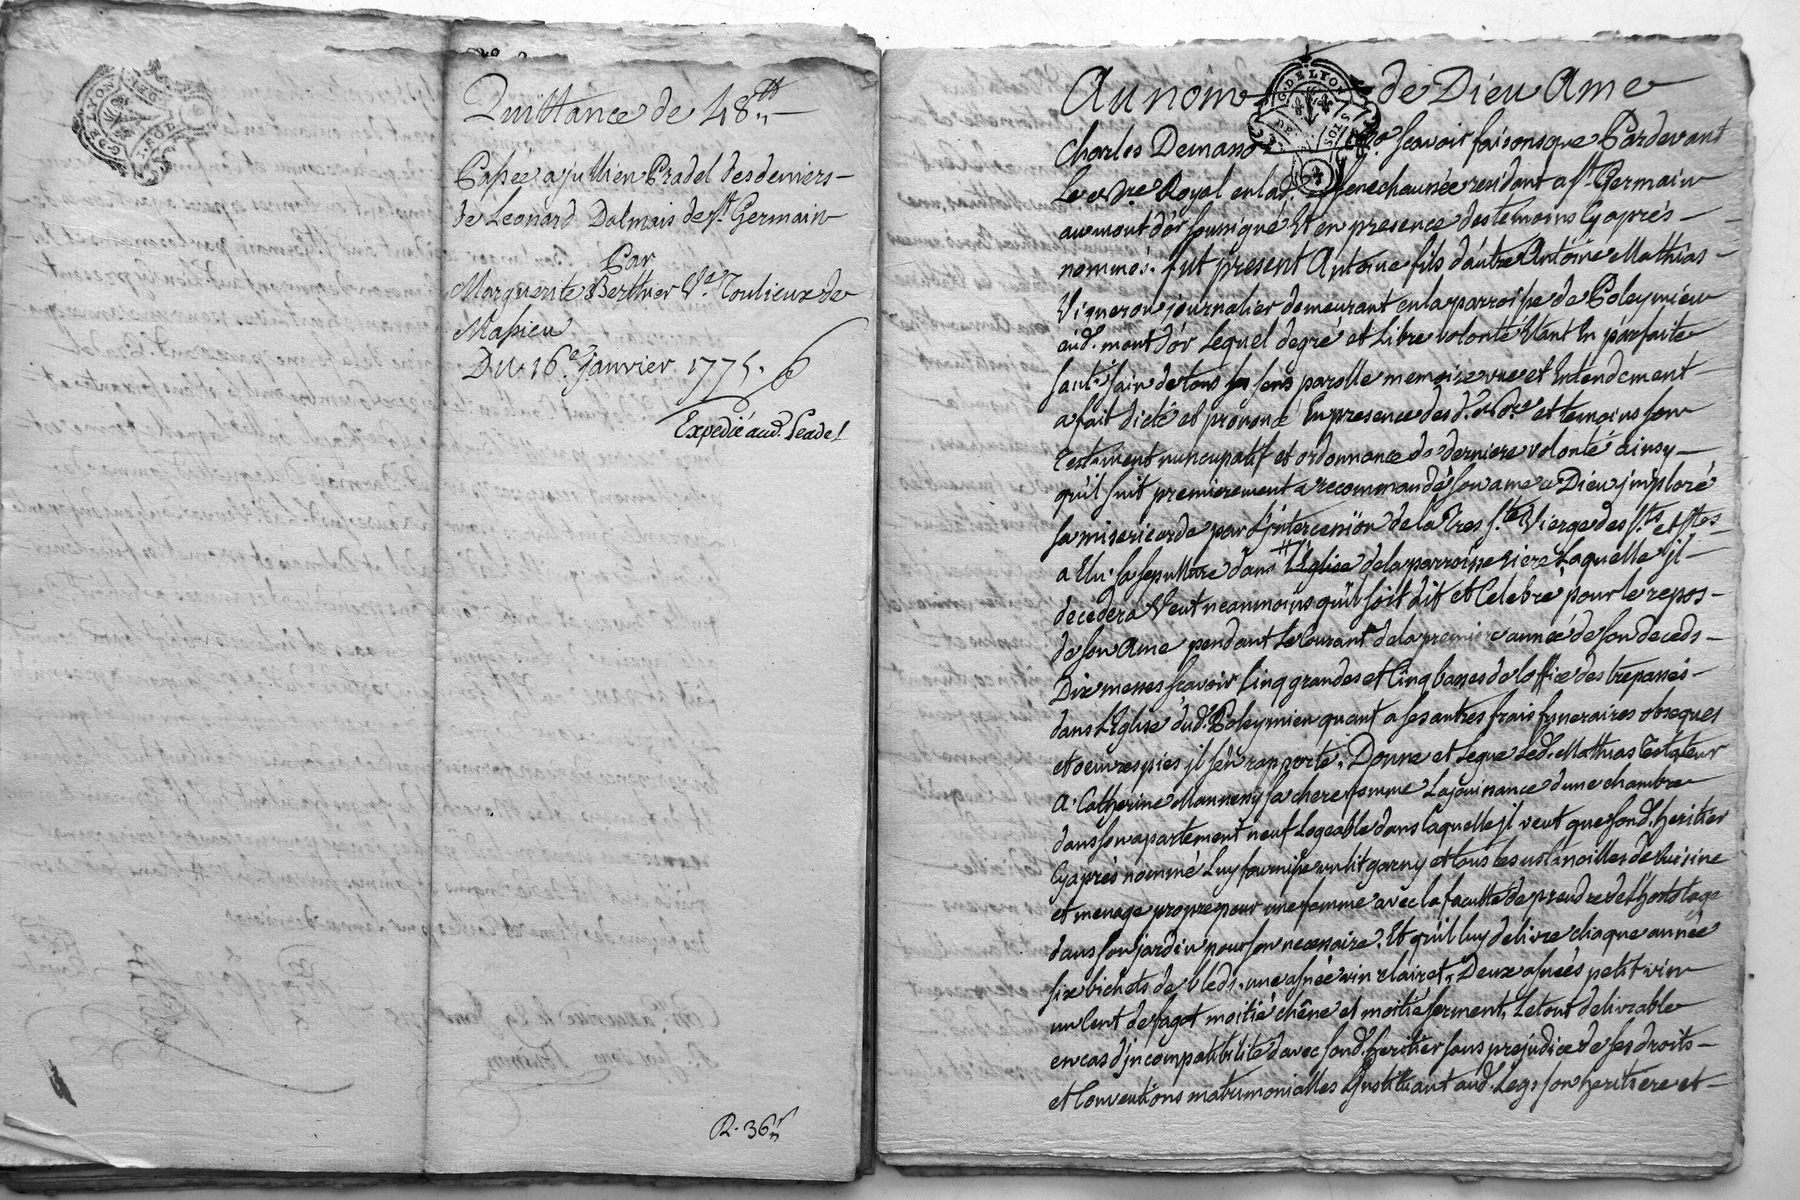 Quittance de 48 tt
Passée a jullien Pradel des deniers
de Leonard Dalmais de st. Germain
Par
Marguerite Berthier Ve. Toulieux de
Massieu
Du 16e. Janvier 1775.
Expedié aud. Pradel
R. 36
G. DE LYON
Au nom de Dieu Ame
Charles Demano scavoir faisons que Pardevant
Le Royal en lad. senechaussée residant a st. Germain
au mont d'or soussigné Et en presence des temoins Cy aprés
nommés. fut present Antoine fils d'autre Antoine Mathias
Vigneron journalier demeurant en la parroisse de Poleymieu
aud. mont d'or Lequel de gré et Libre volonté Etant En parfaite
santé, sain de tous ses sens parolle memoire vue et Entendement
a fait dicté et prononcé En presence des d. et temoins son
Testament nuncupatif et ordonnance de derniere volonté ainsy
qu'il suit premierement a recommandé son ame a Dieu jmploré
sa misericorde par L'jntercession de la Tres ste. Vierge des sts. et stes.
a Elu sa sepulture dans L'Eglise de la parroisse riere Laquelle jl
decedera Veut neanmoins qu'il soit dit et Celebré pour le repos
de son Ame pendant Le Courant de la premiere année de son deceds
Dix messes scavoir Cinq grandes et Cinq basses de l'office des trepassés
dans L'Eglise dud. Poleymieu quant a ses autres frais funeraires obseques
et oeuvres pies jl s'en rapporte, Donne et Legue Led. Mathias Testateur
a Catherine Manneny sa chere femme La jouissance d'une chambre
dans son apartement neuf Logeable dans Laquelle jl veut que son d. heritier
Cy aprés nommé Luy fournisse un lit garny et tous les ustancilles de Cuisine
et menage propre pour une femme avec la faculté de prendre de l'hortolage
dans son jardin pour son necessaire, Et qu'il luy delivre chaque année
six bichets de bled, une asnée vin clairet, Deux asnées petit vin
un Cent de fagot moitié chêne et moitié serment, Le tout delivrable
en cas d'jncompatibilité d'avec son d. heritier sans prejudice de ses droits
et Conventions matrimonialles L'jnstituant aud. Legs son heritiere et